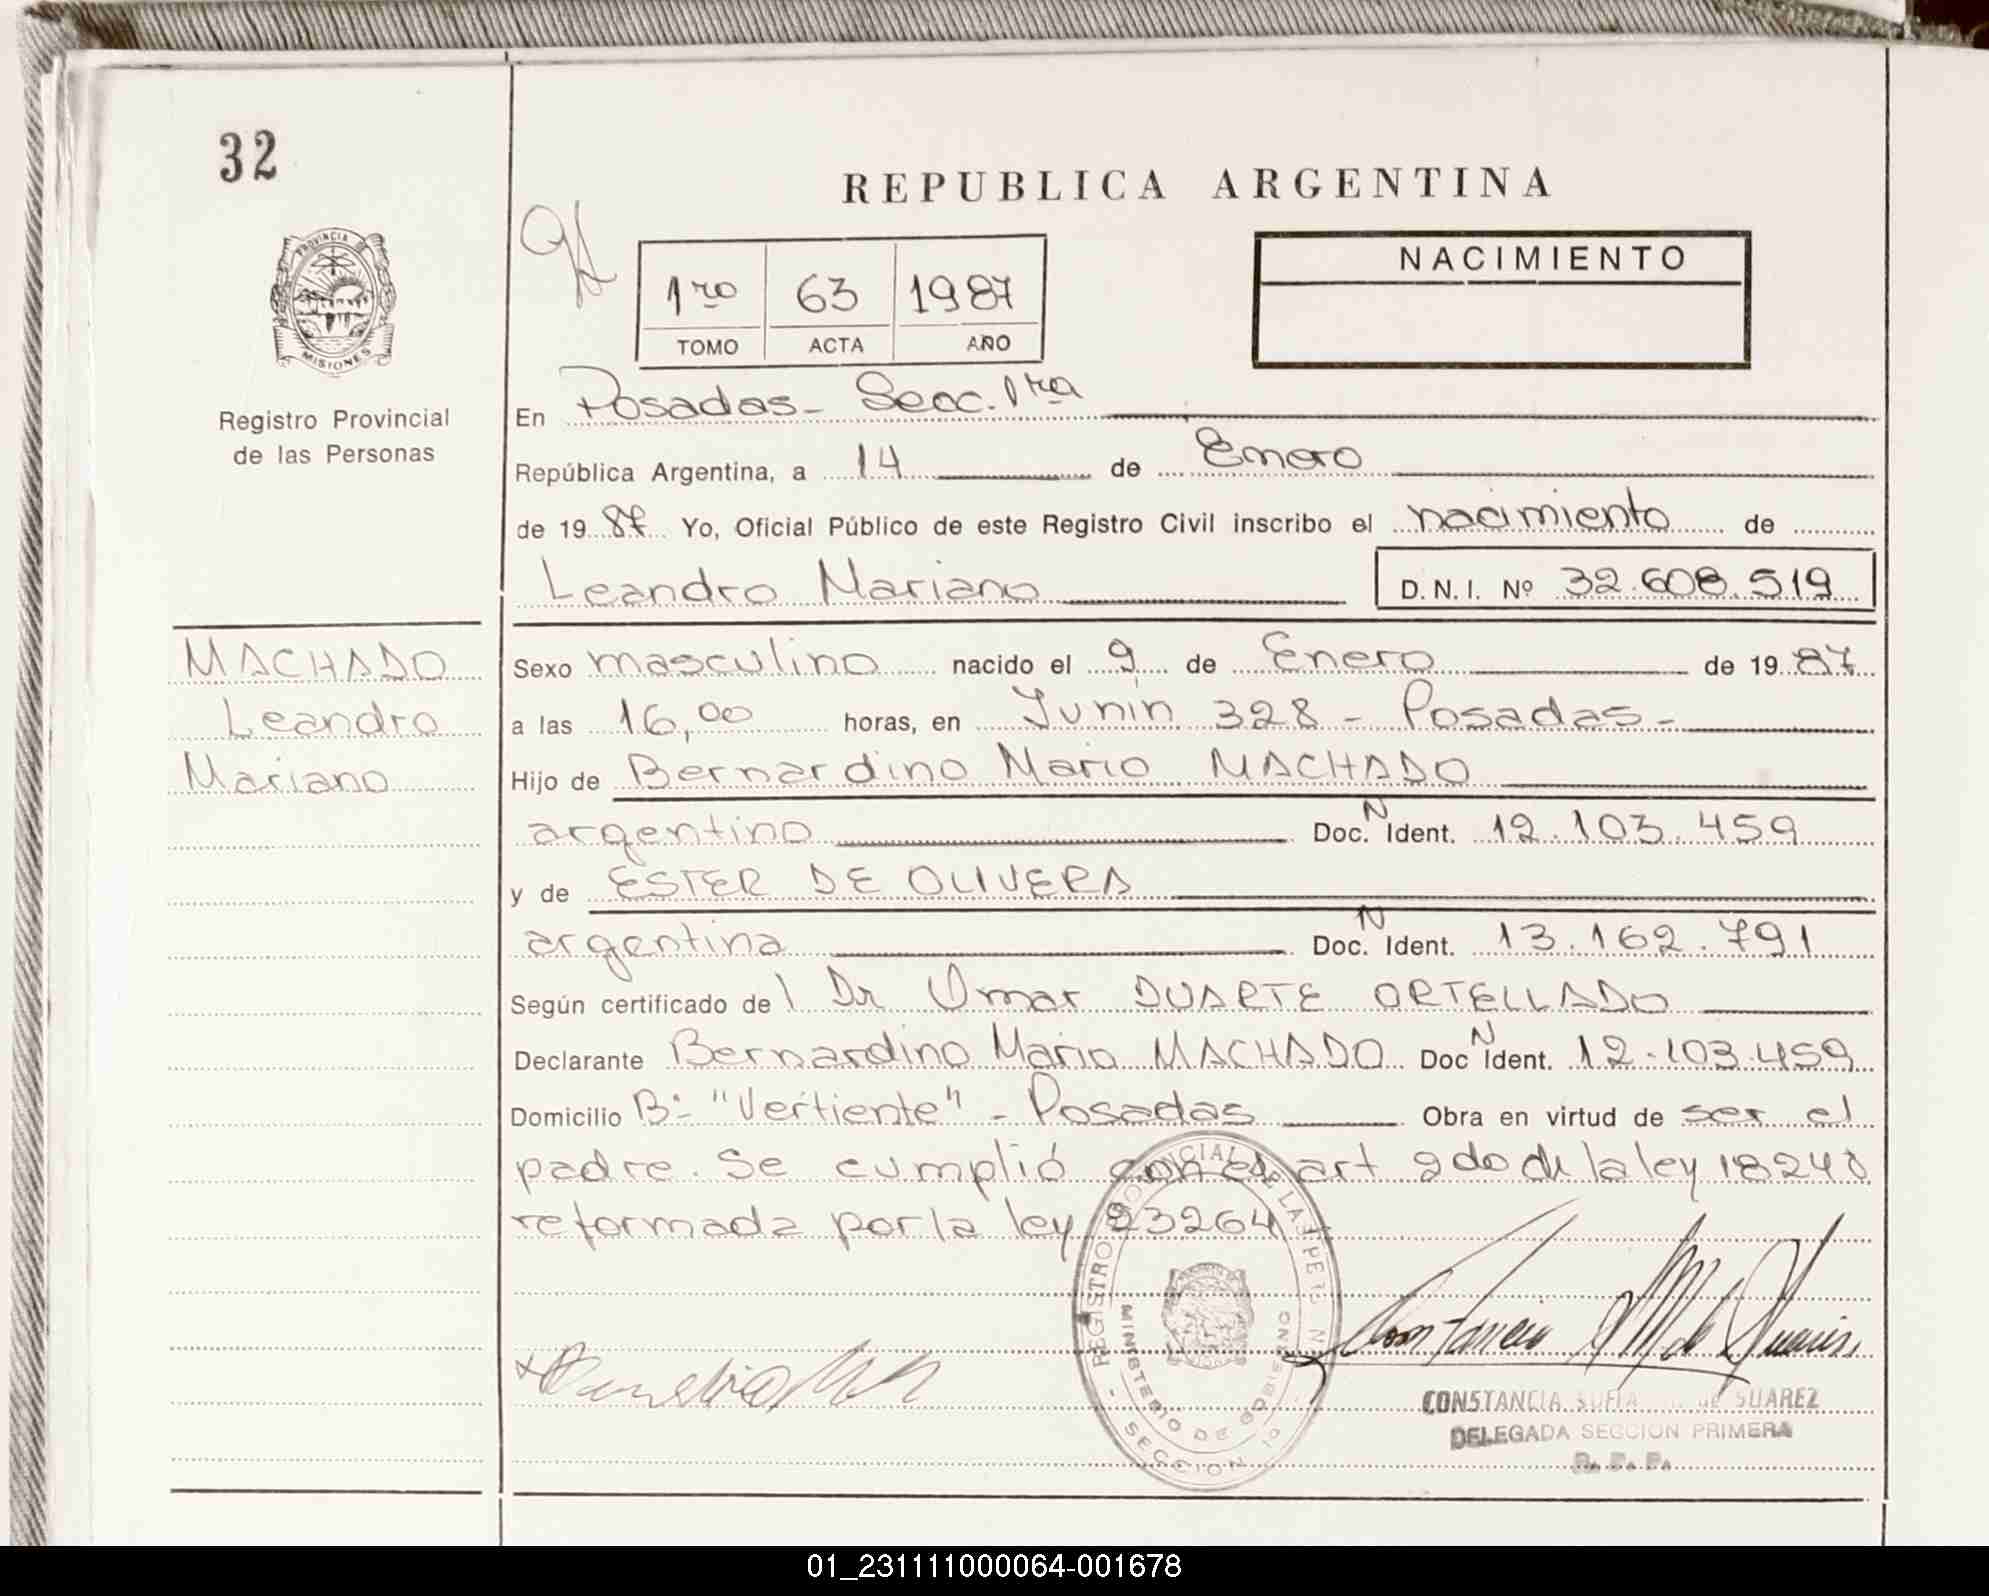 32
REPUBLICA ARGENTINA
NACIMIENTO
1ro 63 1987
TOMO ACTA AÑO
PROVINCIA DE MISIONES
Registro Provincial
de las Personas
En Posadas - Secc. 1ra
República Argentina, a 14 de Enero
de 1987 Yo, Oficial Público de este Registro Civil inscribo el nacimiento de
Leandro Mariano D.N.I. Nº 32.608.519
MACHADO
Leandro
Mariano
Sexo masculino nacido el 9 de Enero de 1987
a las 16,00 horas, en Junin 328 - Posadas -
Hijo de Bernardino Mario MACHADO
argentino Doc. N Ident. 12.103.459
y de ESTER DE OLIVERA
argentina Doc. N Ident. 13.162.791
Según certificado del Dr Omar DUARTE ORTELLADO
Declarante Bernardino Mario MACHADO Doc N Ident. 12.103.459
Domicilio Bº "Vertiente" - Posadas Obra en virtud de ser el
padre. Se cumplió con el art 2do de la ley 18248
reformada por la ley 23264
REGISTRO PROVINCIAL DE LAS PERSONAS
MINISTERIO DE GOBIERNO
SECCION 1º
CONSTANCIA SOFIA de SUAREZ
DELEGADA SECCION PRIMERA
R. P. P.
01_231111000064-001678